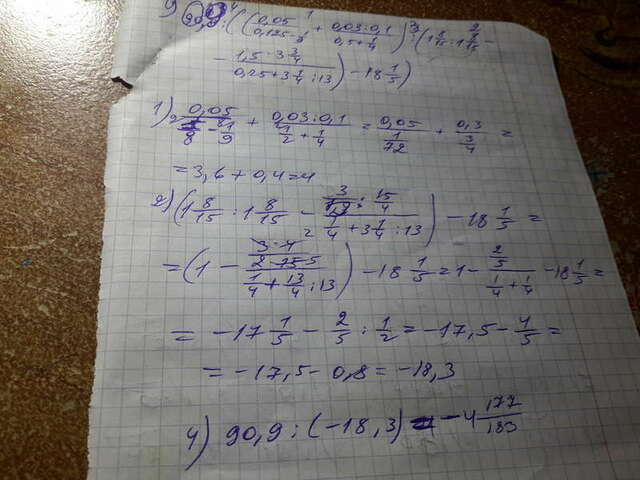 90,9 : ((0,05/(0,125 - 1/9) + 0,03:0,1/(0,5 + 1/4)) : (1 8/15 : 1 8/15 -
- 1,5 : 3 3/4/(0,25 + 3 1/4 : 13)) - 18 1/5)
1) 0,05/(1/8 - 1/9) + 0,03:0,1/(1/2 + 1/4) = 0,05/(1/72) + 0,3/(3/4) =
= 3,6 + 0,4 = 4
2) (1 8/15 : 1 8/15 - (3/2 : 15/4)/(1/4 + 3 1/4 : 13)) - 18 1/5 =
= (1 - (3·4/2·15 5)/(1/4 + 13/4 : 13)) - 18 1/5 = 1 - (2/5)/(1/4 + 1/4) - 18 1/5 =
= -17 1/5 - 2/5 : 1/2 = -17,5 - 4/5 =
= -17,5 - 0,8 = -18,3
4) 90,9 : (-18,3) = -4 177/183